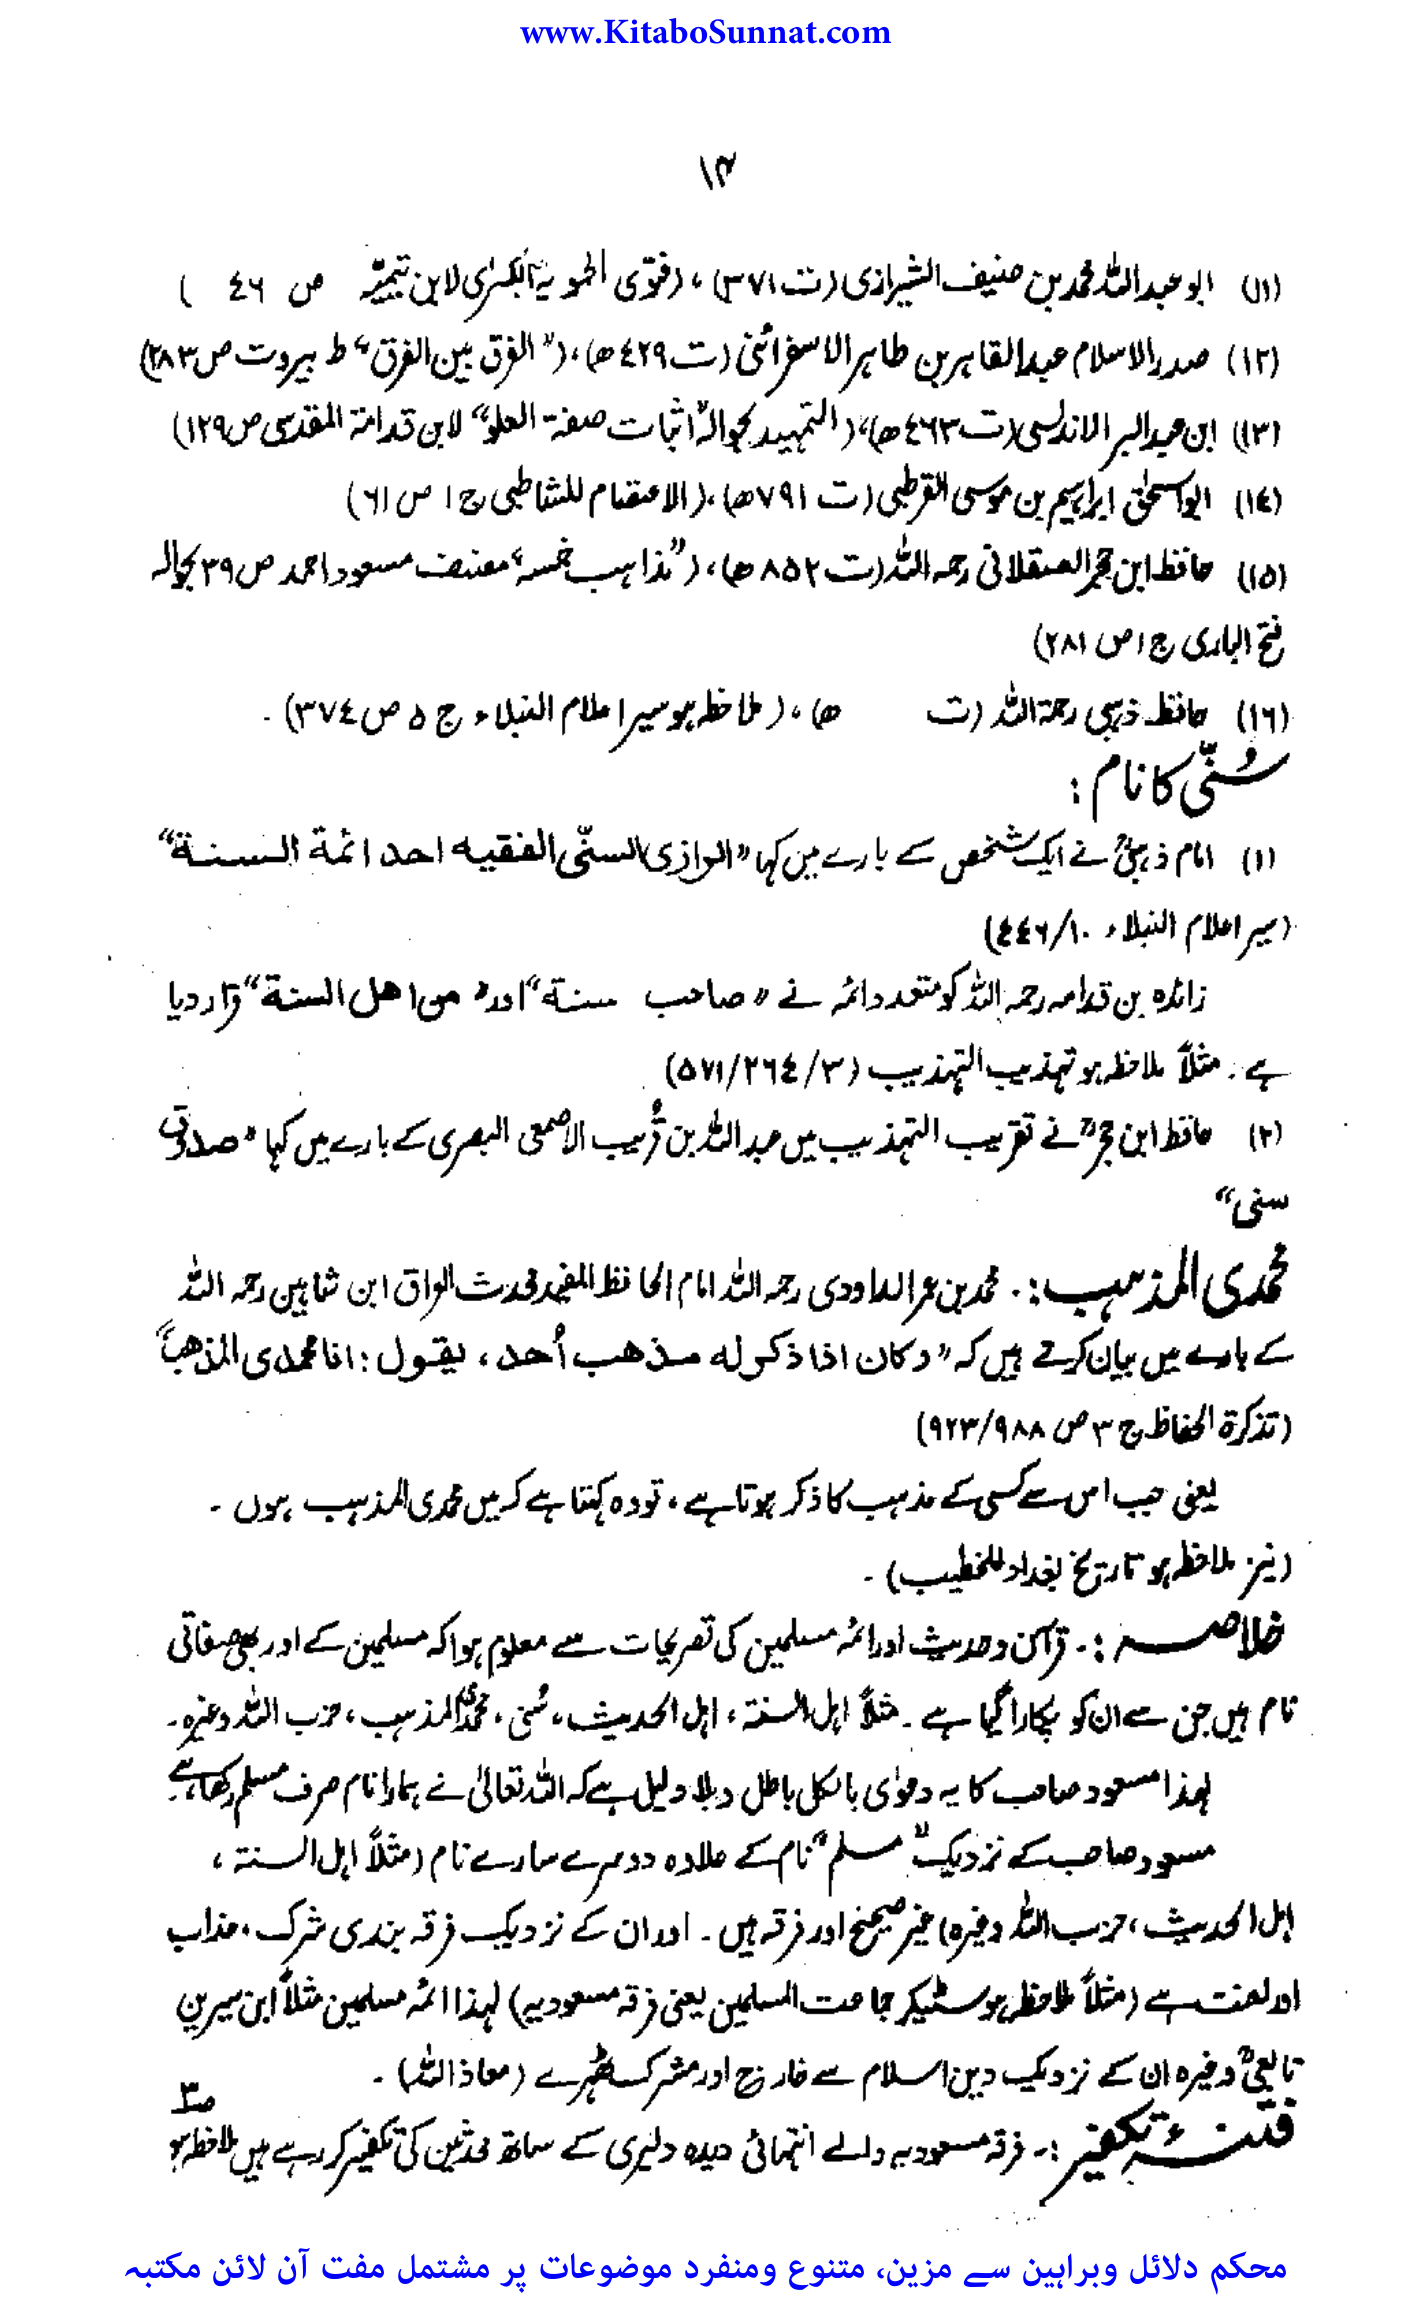 www.KitaboSunnat.com
۱۴
(۱۱) ابو عبداللہ محمد بن خفیف الشیرازی (ت ۳۷۱) ، (فتوٰی الحمویۃ الکبرٰی لابن تیمیہؒ ص ٤٦ )
(۱۲) صدرالاسلام عبدالقاہر بن طاہر الاسفرائنی (ت ٤۲۹ھ)، (”الفرق بین الفرق“ ط بیروت ص ۲۸۳)
(۱۳) ابن عبدالبر الاندلسی (ت ٤٦۳ھ)، (التمہید بحوالہ ”اثبات صفۃ العلو“ لابن قدامۃ المقدسی ص ۱۲۹)
(۱٤) ابواسحٰق ابراہیم بن موسی القرطبی (ت ۷۹۱ھ)، (الاعتصام للشاطبی ج ۱ ص ٦۱)
(۱۵) حافظ ابن حجر العسقلانی رحمہ اللہ (ت ۸۵۲ھ)، (”مذاہب خمسہ“ مصنف مسعود احمد ص ۳۹ بحوالہ
فتح الباری ج ۱ ص ۲۸۱)
(۱٦) حافظ ذہبی رحمۃ اللہ (ت ھ)، (ملاحظہ ہو سیر اعلام النبلاء ج ۵ ص ۳۷٤)۔
سُنّی کا نام :
(۱) امام ذہبیؒ نے ایک شخص کے بارے میں کہا ”الرازی السنّی الفقیه احد ائمة السنة“
(سیر اعلام النبلاء ۱۰/٤٤٦)
زائدہ بن قدامہ رحمہ اللہ کو متعدد ائمہ نے ”صاحب سنة“ اور ”من اهل السنة“ قرار دیا
ہے۔ مثلاً ملاحظہ ہو تہذیب التہذیب (۳/۲٦٤/۵۷۱)
(۲) حافظ ابن حجرؒ نے تقریب التہذیب میں عبدالملک بن قُریب الاصمعی البصری کے بارے میں کہا ”صدوق
سنی“
محمدی المذہب :۔ محمد بن عمر الداودی رحمہ اللہ امام الحافظ المفید محدث العراق ابن شاہین رحمہ اللہ
کے بارے میں بیان کرتے ہیں کہ ”وکان اذا ذکر له مذهب أحد، یقول : انا محمدی المذهب“
(تذکرة الحفاظ ج ۳ ص ۹۸۸/۹۲۳)
یعنی جب اس سے کسی کے مذہب کا ذکر ہوتا ہے، تو وہ کہتا ہے کہ میں محمدی المذہب ہوں۔
(نیز ملاحظہ ہو تاریخ بغداد للخطیب)۔
خلاصہ :۔ قرآن وحدیث اور ائمہ مسلمین کی تصریحات سے معلوم ہوا کہ مسلمین کے اور بھی صفاتی
نام ہیں جن سے ان کو پکارا گیا ہے۔ مثلاً اہل السنۃ، اہل الحدیث، سُنی، محمدی المذہب، حزب اللہ وغیرہ۔
لہذا مسعود صاحب کا یہ دعوٰی بالکل باطل وبلا دلیل ہے کہ اللہ تعالیٰ نے ہمارا نام صرف مسلم رکھا ہے۔
مسعود صاحب کے نزدیک ”مسلم“ نام کے علاوہ دوسرے سارے نام (مثلاً اہل السنۃ،
اہل الحدیث، حزب اللہ وغیرہ) غیر صحیح اور فرقہ ہیں۔ اور ان کے نزدیک فرقہ بندی شرک، عذاب
اور لعنت ہے (مثلاً ملاحظہ ہو سٹیکر جماعت المسلمین یعنی فرقہ مسعودیہ) لہذا ائمہ مسلمین مثلاً ابن سیرین
تابعیؒ وغیرہ ان کے نزدیک دین اسلام سے خارج اور مشرک ٹھہرے (معاذ اللہ)۔
فتنۂ تکفیر :۔ فرقہ مسعودیہ والے انتہائی دیدہ دلیری کے ساتھ محدثین کی تکفیر کر رہے ہیں ملاحظہ ہو
محکم دلائل وبراہین سے مزین، متنوع ومنفرد موضوعات پر مشتمل مفت آن لائن مکتبہ